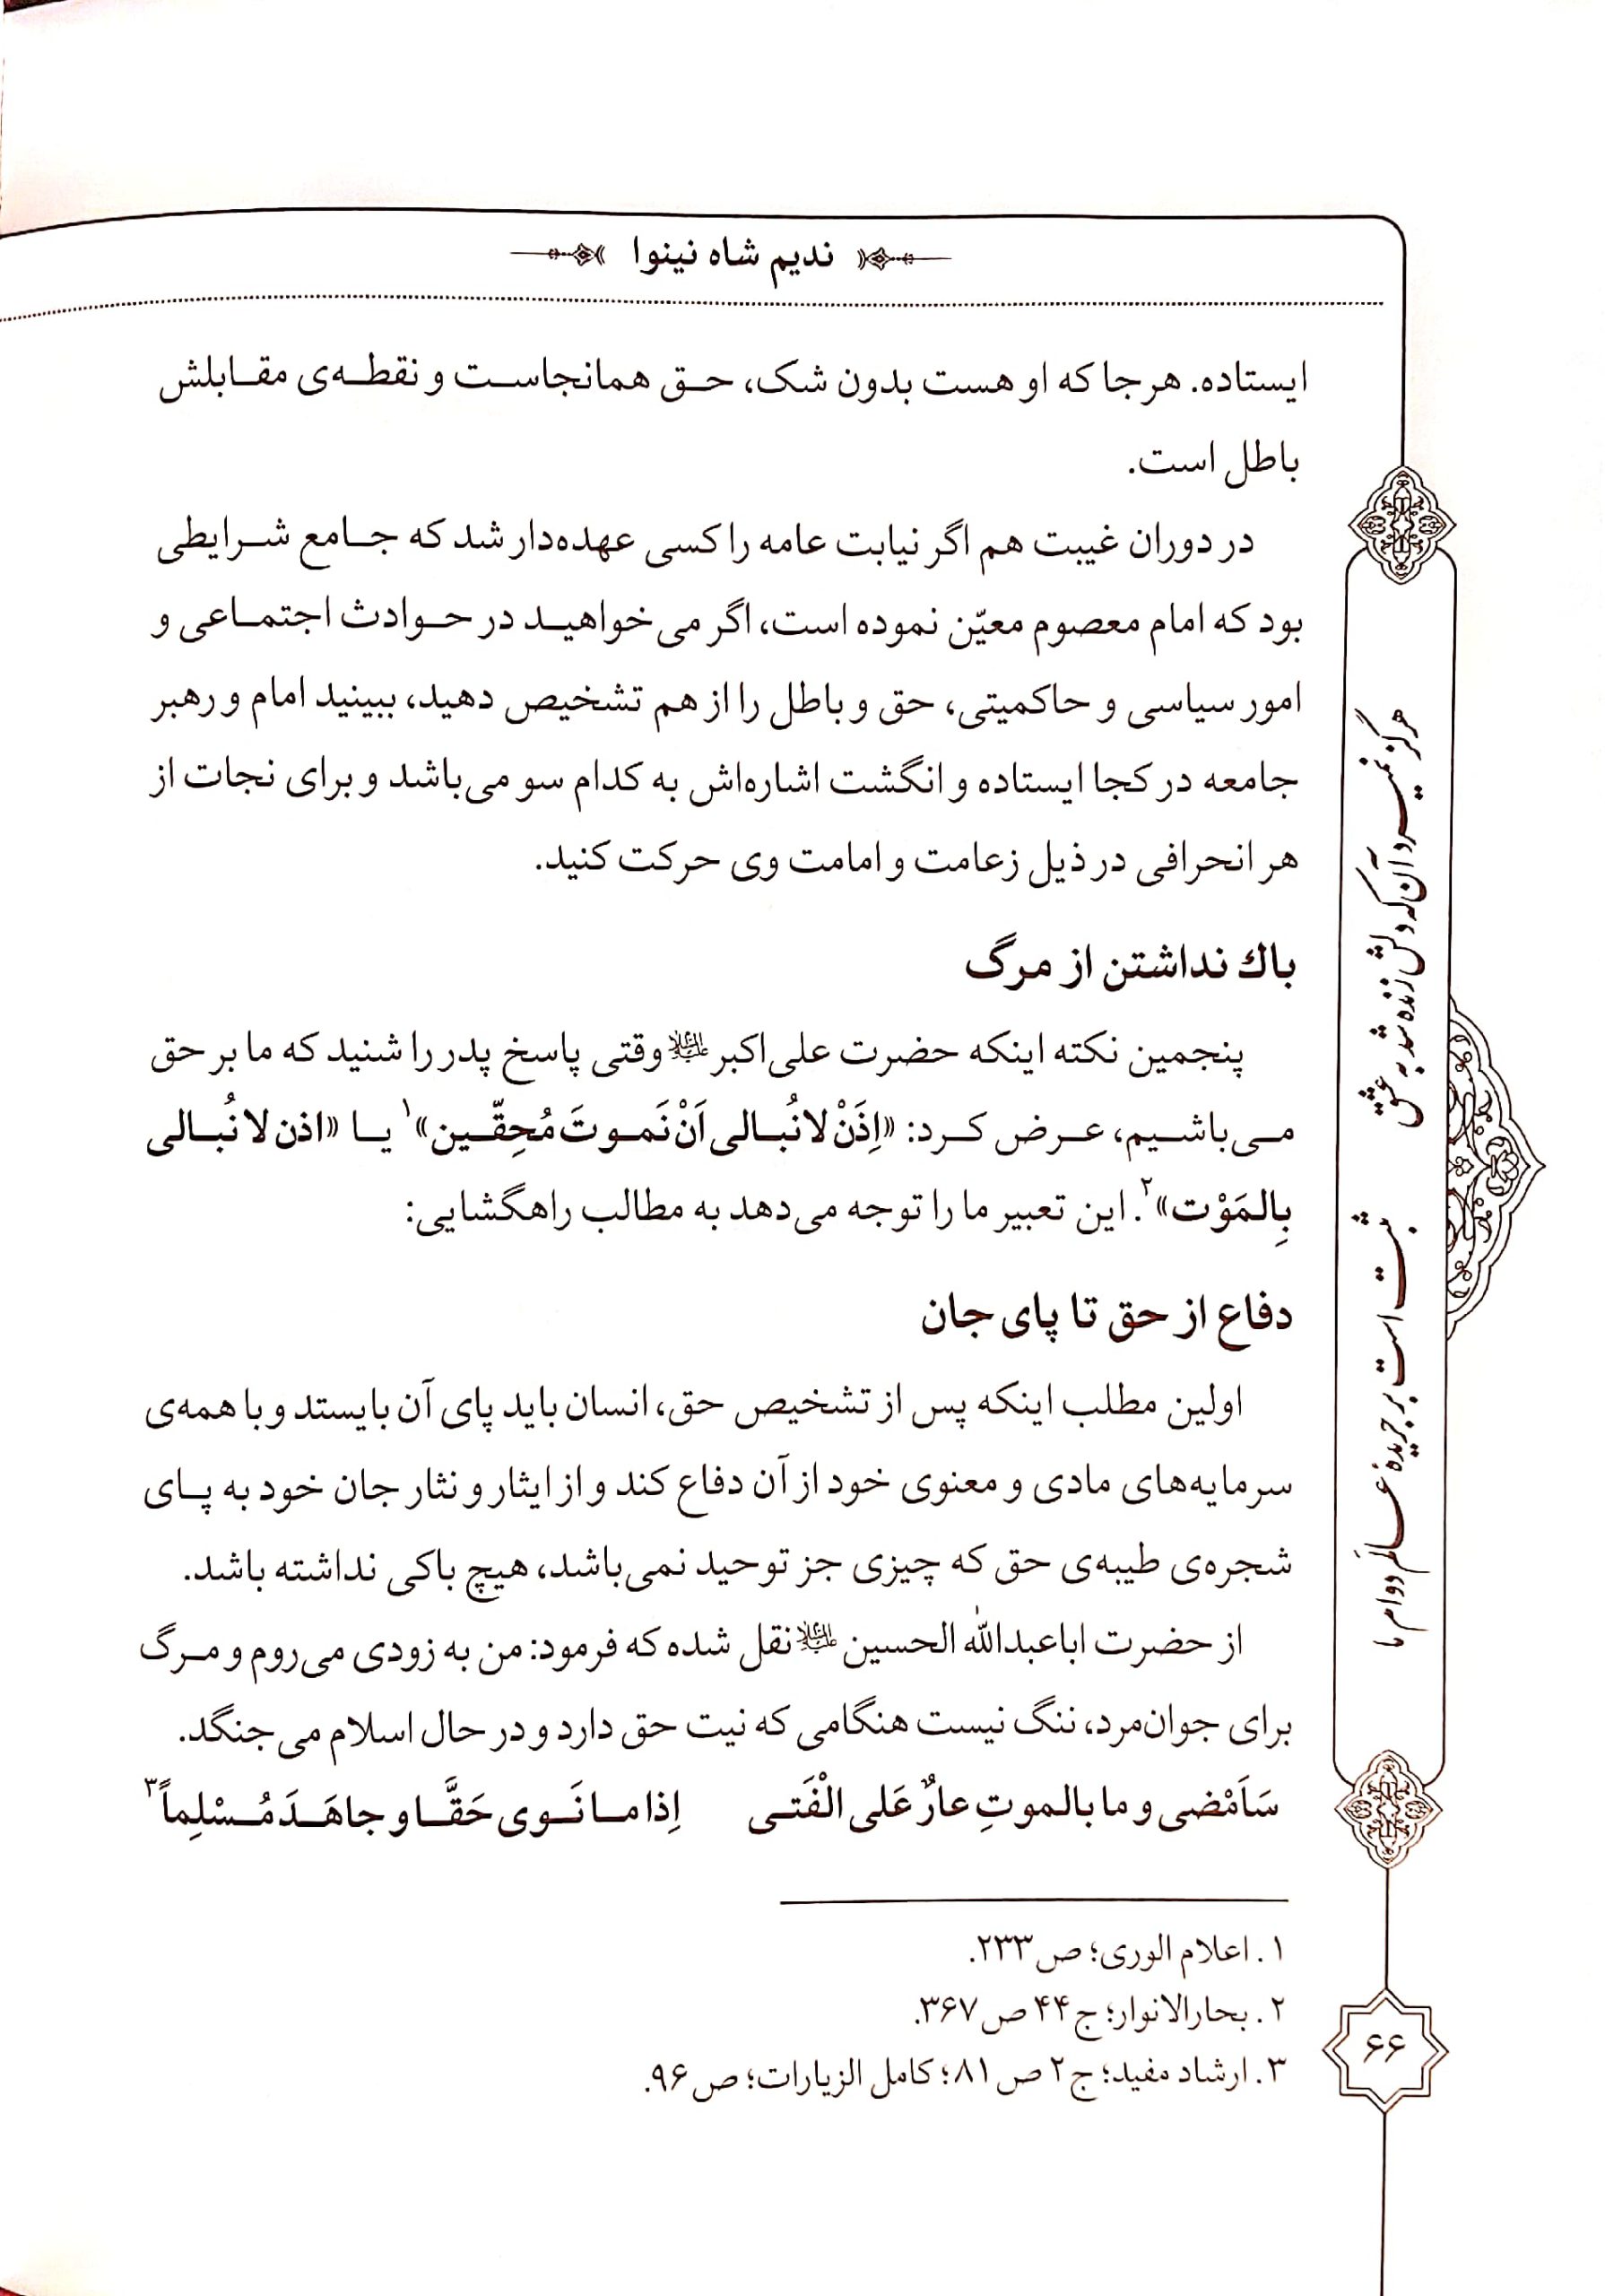 ندیم شاه نینوا
ایستاده. هرجا که او هست بدون شک، حق همانجاست و نقطه‌ی مقابلش
باطل است.
در دوران غیبت هم اگر نیابت عامه را کسی عهده‌دار شد که جامع شرایطی
بود که امام معصوم معیّن نموده است، اگر می‌خواهید در حوادث اجتماعی و
امور سیاسی و حاکمیتی، حق و باطل را از هم تشخیص دهید، ببینید امام و رهبر
جامعه در کجا ایستاده و انگشت اشاره‌اش به کدام سو می‌باشد و برای نجات از
هر انحرافی در ذیل زعامت و امامت وی حرکت کنید.
باك نداشتن از مرگ
پنجمین نکته اینکه حضرت علی‌اکبر علیه‌السلام وقتی پاسخ پدر را شنید که ما بر حق
می‌باشیم، عرض کرد: «اِذَنْ لا نُبالی اَنْ نَموتَ مُحِقّین»۱ یا «اذن لا نُبالی
بِالمَوْت»۲. این تعبیر ما را توجه می‌دهد به مطالب راهگشایی:
دفاع از حق تا پای جان
اولین مطلب اینکه پس از تشخیص حق، انسان باید پای آن بایستد و با همه‌ی
سرمایه‌های مادی و معنوی خود از آن دفاع کند و از ایثار و نثار جان خود به پای
شجره‌ی طیبه‌ی حق که چیزی جز توحید نمی‌باشد، هیچ باکی نداشته باشد.
از حضرت اباعبدالله الحسین علیه‌السلام نقل شده که فرمود: من به زودی می‌روم و مرگ
برای جوان‌مرد، ننگ نیست هنگامی که نیت حق دارد و در حال اسلام می‌جنگد.
سَاَمْضی و ما بالموتِ عارٌ عَلی الْفَتی     اِذا ما نَوی حَقَّا و جاهَدَ مُسْلِماً۳
۱. اعلام الوری؛ ص۲۳۳.
۲. بحارالانوار؛ ج۴۴ ص۳۶۷.
۳. ارشاد مفید؛ ج۲ ص۸۱؛ کامل الزیارات؛ ص۹۶.
هرگز نمیرد آن که دلش زنده شد به عشق     ثبت است بر جریدهٔ عالم دوام ما
۶۶